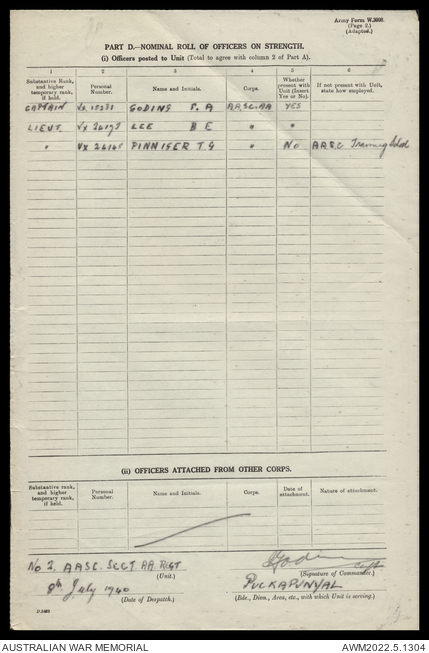 Army Form W.3008.
(Page 2.)
(Adapted.)
PART D.—NOMINAL ROLL OF OFFICERS ON STRENGTH.
(i) Officers posted to Unit (Total to agree with column 2 of Part A).
1 2 3 4 5 6
Substantive Rank, and higher temporary rank, if held. Personal Number. Name and Initials. Corps. Whether present with Unit (Insert Yes or No). If not present with Unit, state how employed.
CAPTAIN GODING F. A AASC. AA YES
LIEUT. LEE B E " "
" VX PINNIGER T. G " NO AASC Training School
(ii) OFFICERS ATTACHED FROM OTHER CORPS.
Substantive rank, and higher temporary rank, if held. Personal Number. Name and Initials. Corps. Date of attachment. Nature of attachment.
No 2. AASC. SECT. AA. REGT
(Unit.)
8th July 1940
(Date of Despatch.)
Goding Capt
(Signature of Commander.)
PUCKAPUNYAL
(Bde., Divn., Area, etc., with which Unit is serving.)
AUSTRALIAN WAR MEMORIAL AWM2022.5.1304